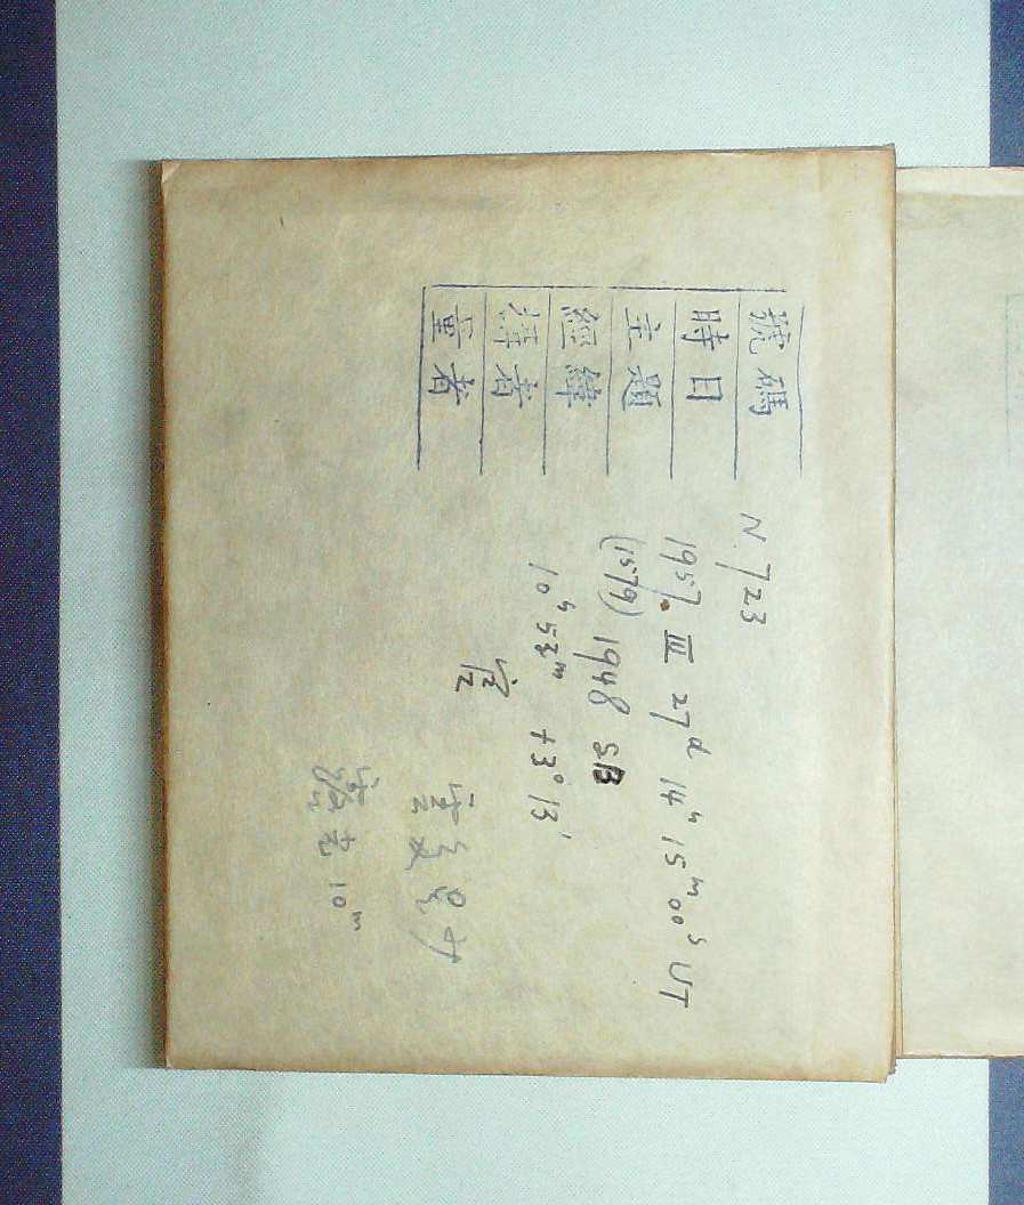 號碼 N 723
時日 1957. III 27d 14h 15m 00s UT
主題 (1579) 1948 SB
經緯 10h 53m +3° 13'
者
量者
10m